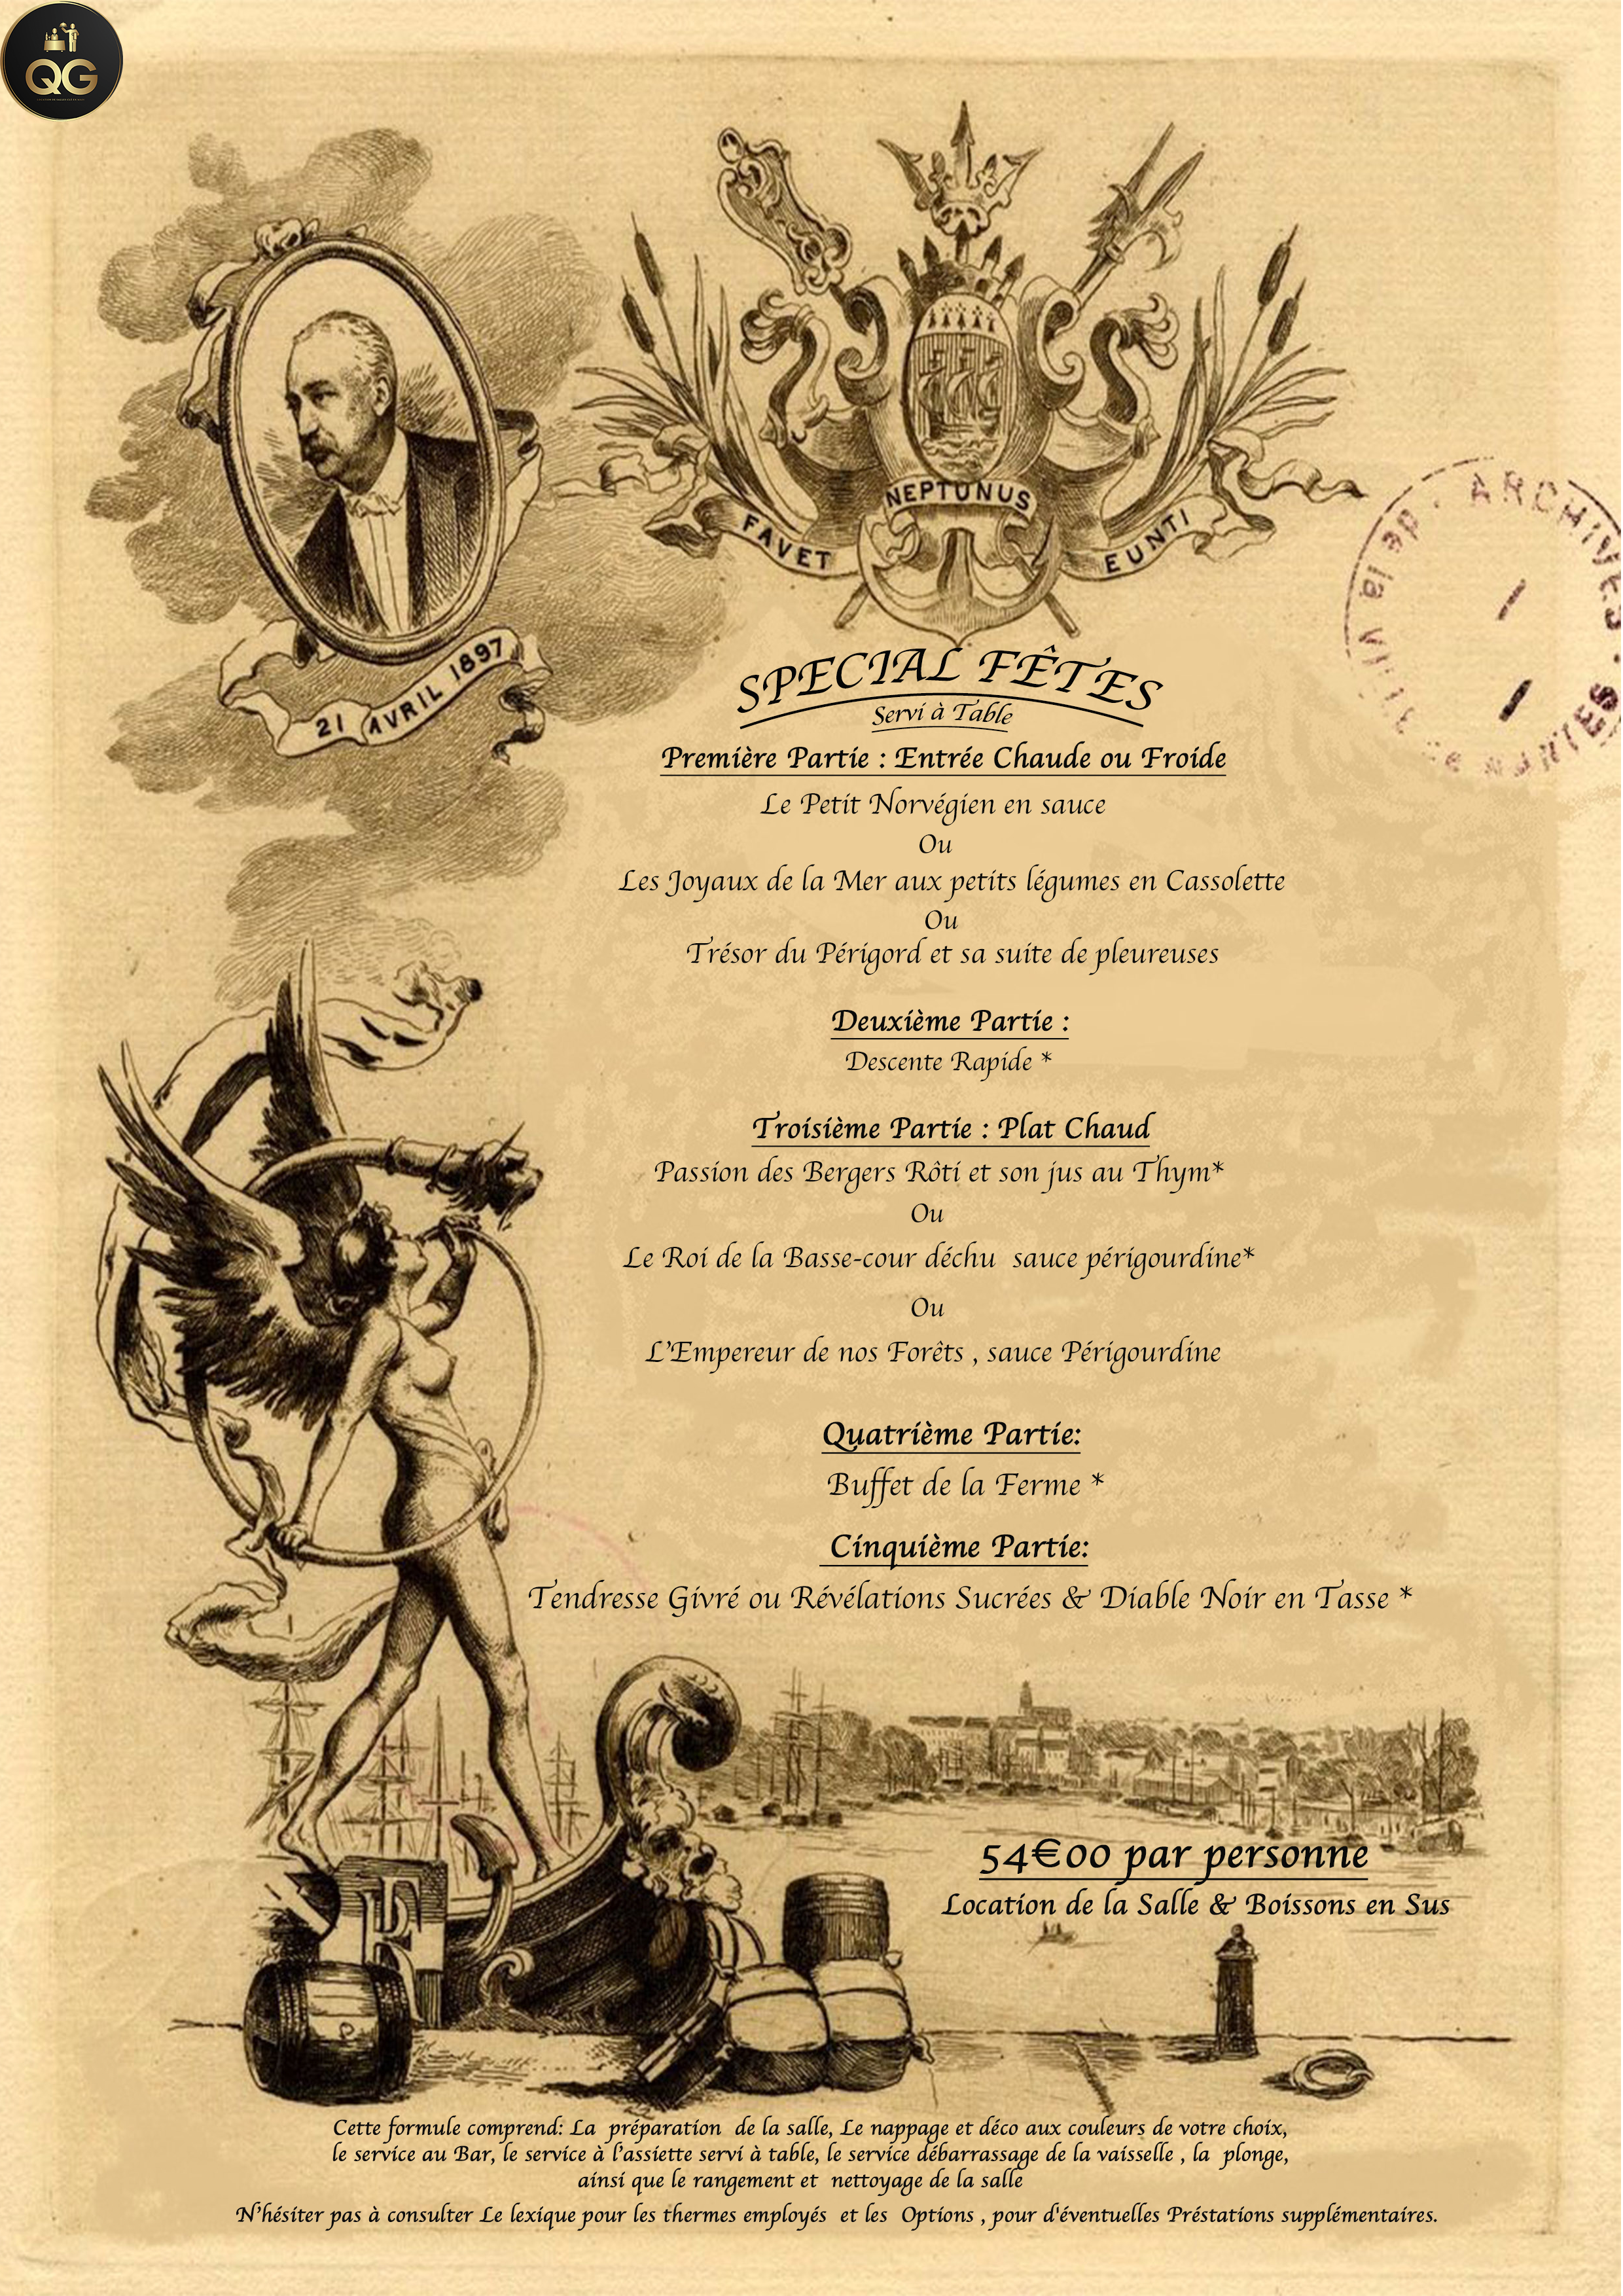 QG
FAVET NEPTUNUS EUNTI
21 AVRIL 1897
ARCHIVES
de la
SPECIAL FÊTES
Servi à Table
Première Partie : Entrée Chaude ou Froide
Le Petit Norvégien en sauce
Ou
Les Joyaux de la Mer aux petits légumes en Cassolette
Ou
Trésor du Périgord et sa suite de pleureuses
Deuxième Partie :
Descente Rapide *
Troisième Partie : Plat Chaud
Passion des Bergers Rôti et son jus au Thym*
Ou
Le Roi de la Basse-cour déchu sauce périgourdine*
Ou
L'Empereur de nos Forêts , sauce Périgourdine
Quatrième Partie:
Buffet de la Ferme *
Cinquième Partie:
Tendresse Givré ou Révélations Sucrées & Diable Noir en Tasse *
54€00 par personne
Location de la Salle & Boissons en Sus
Cette formule comprend: La préparation de la salle, Le nappage et déco aux couleurs de votre choix,
le service au Bar, le service à l'assiette servi à table, le service débarrassage de la vaisselle , la plonge,
ainsi que le rangement et nettoyage de la salle
N'hésiter pas à consulter Le lexique pour les thermes employés et les Options , pour d'éventuelles Préstations supplémentaires.